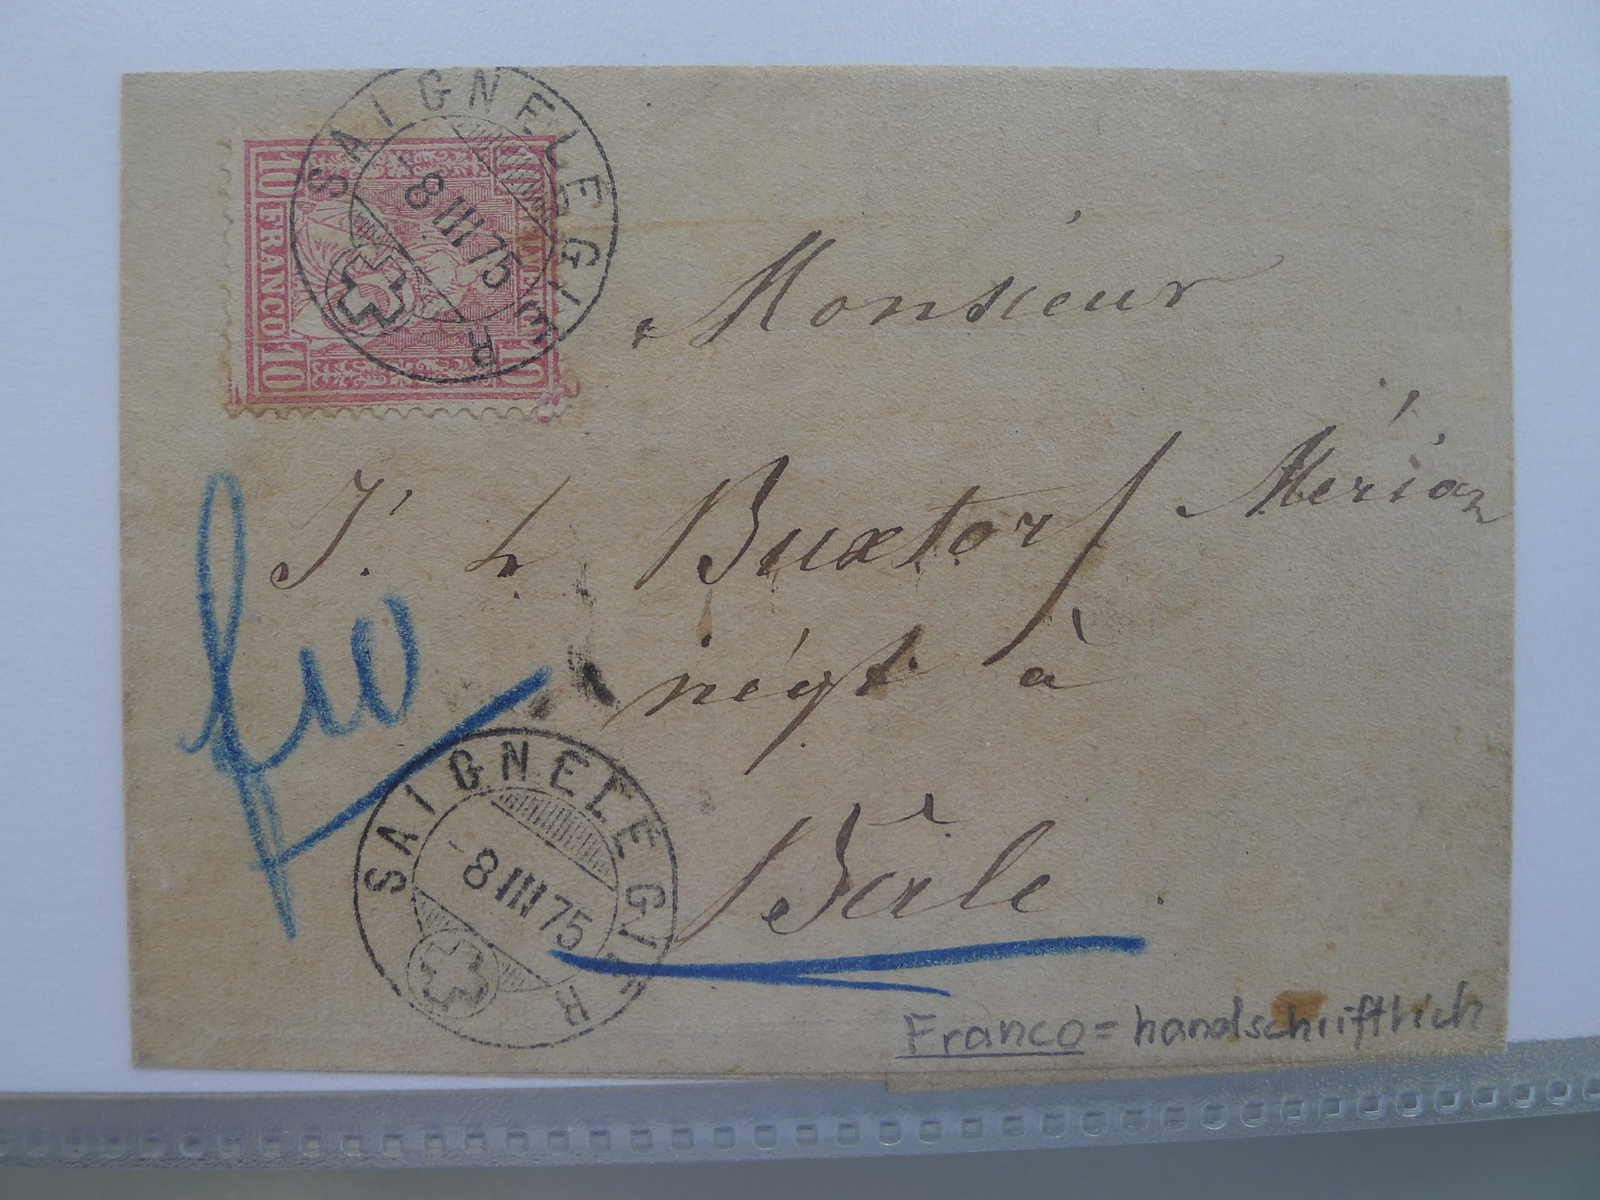 SAIGNELEGIER
8 III 75
10 FRANCO 10
10
Monsieur
J. h Buxtorf Mérian
négt à
Bâle
fro
SAIGNELEGIER
- 8 III 75
Franco = handschriftlich